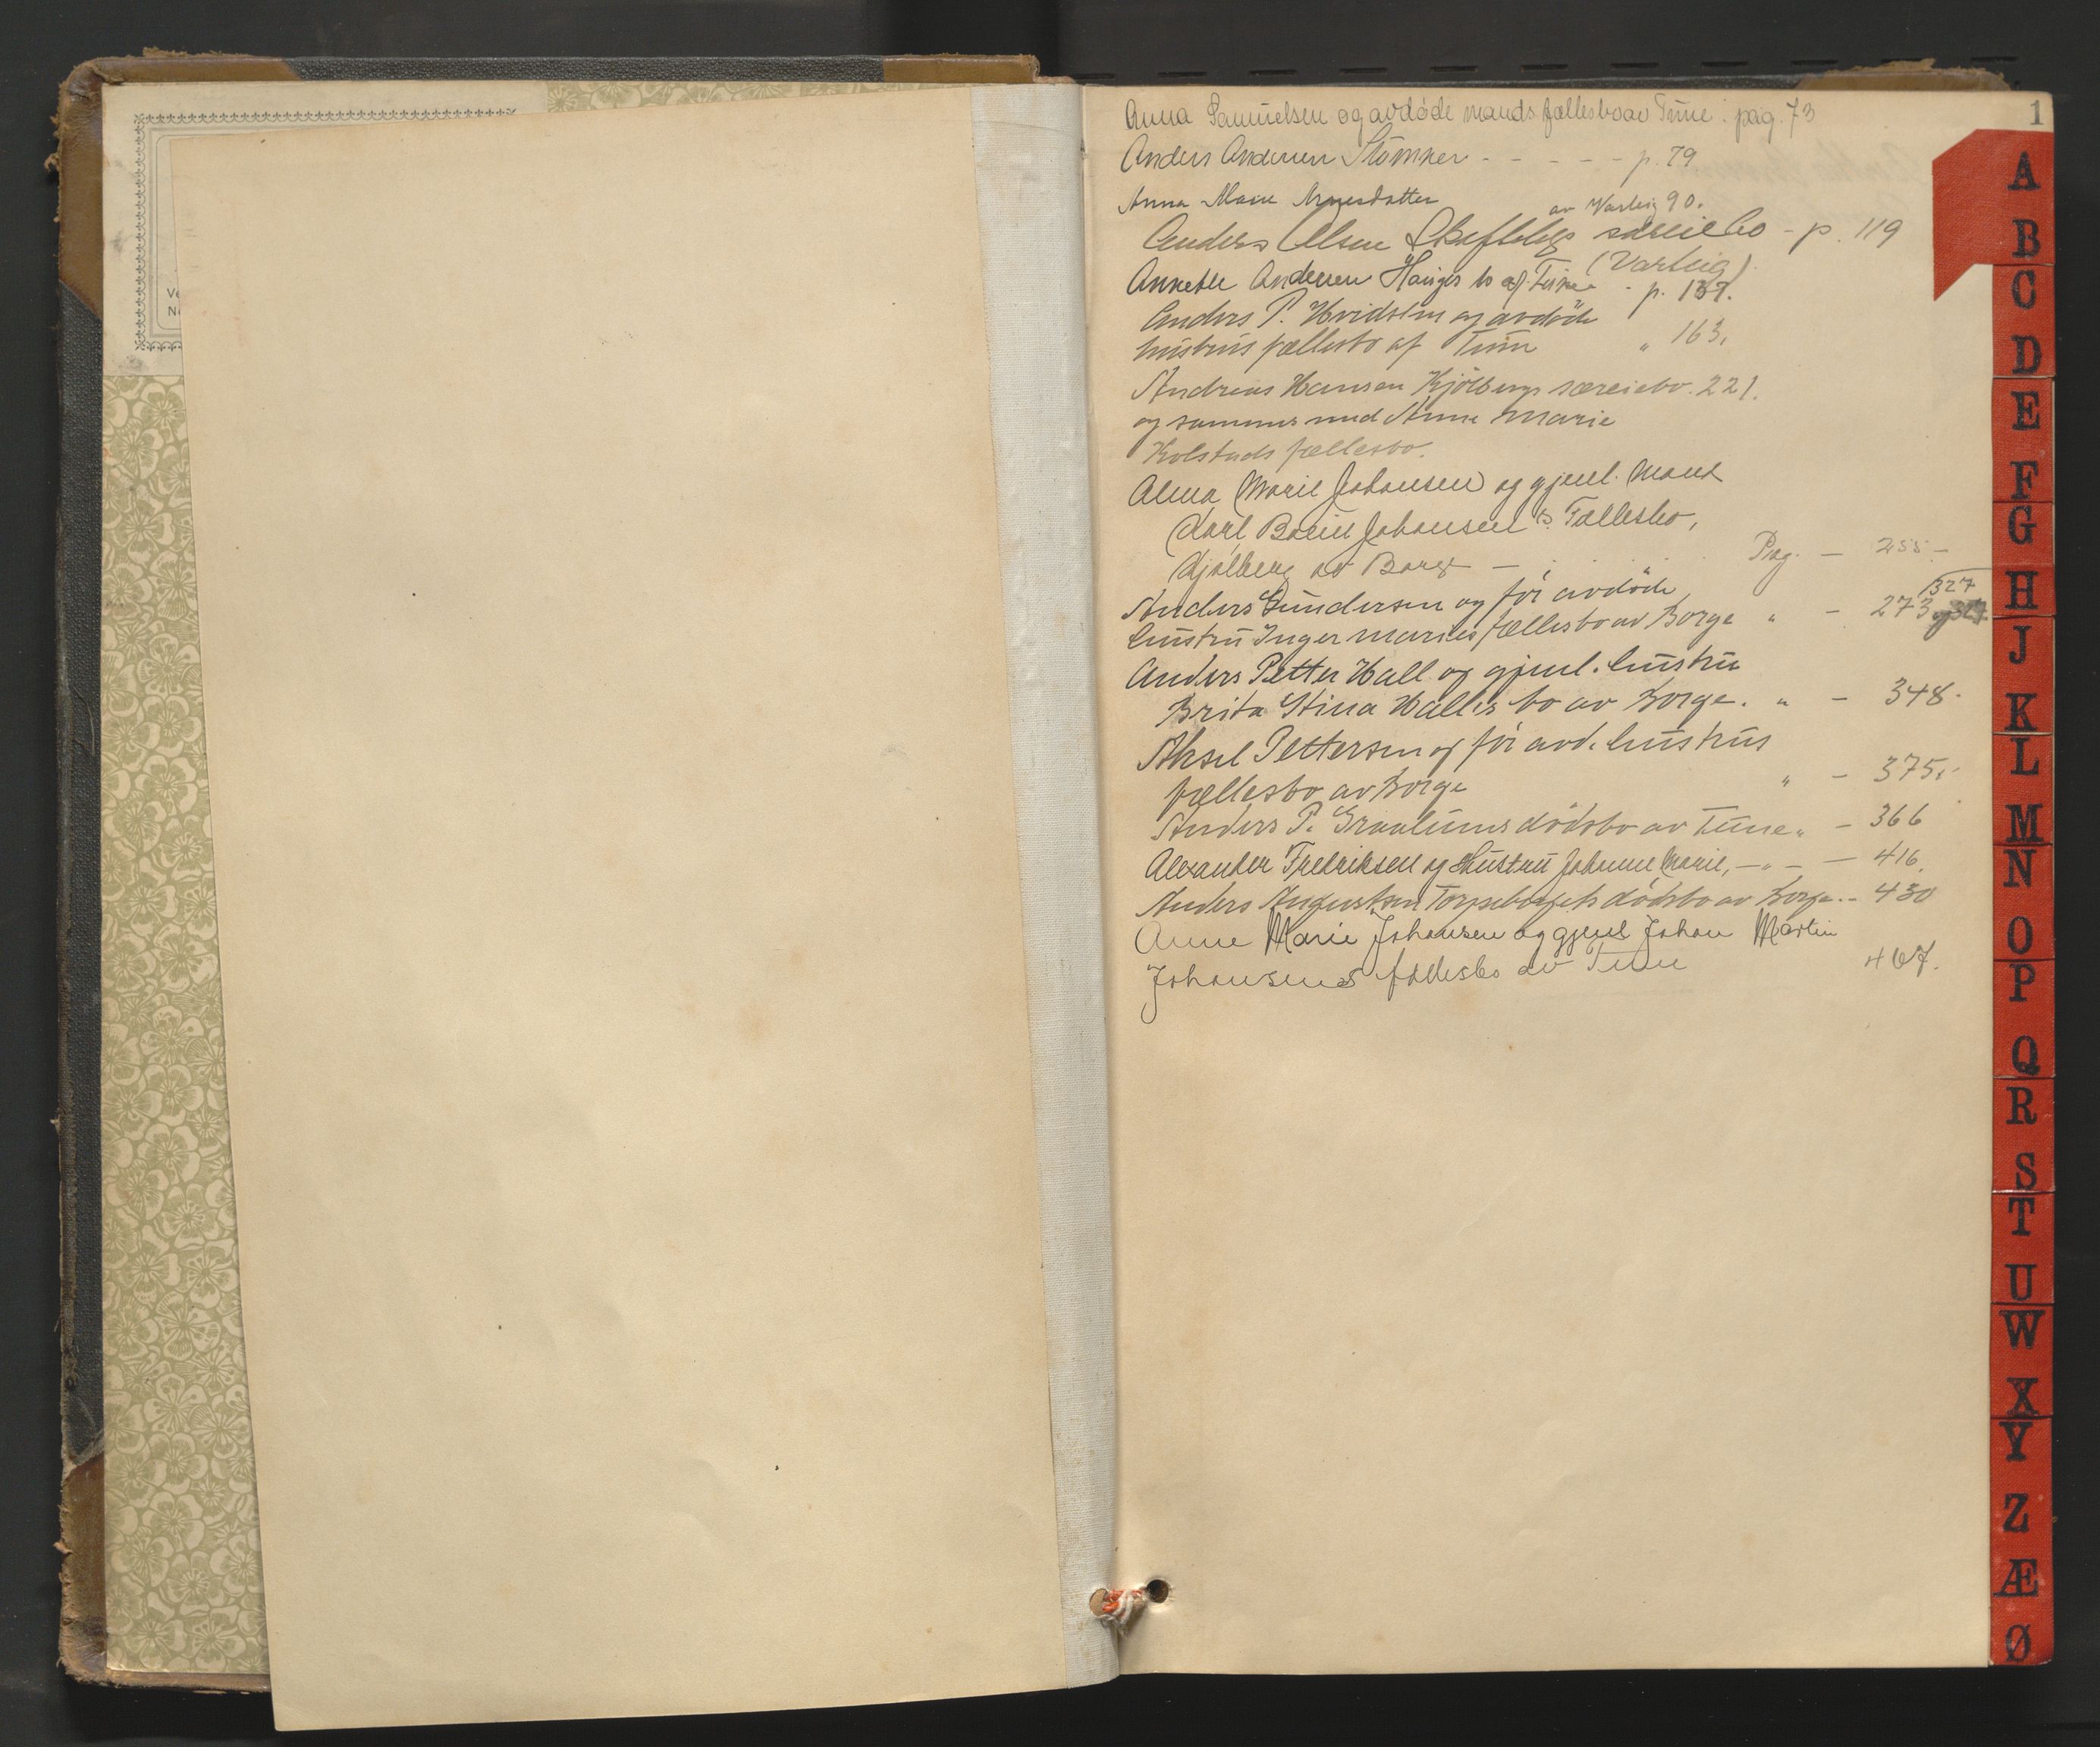 Ve
No
1
Anna Samuelsen og avdøde mands fællesbo av Tune: pag. 73
Anders Andersen Stömner - - - - - p. 79
Anna Marie Arnesdatter av Varteig 90.
Anders Olsen særeiebo - p. 119
(Varteig)
Annette Andersen Hauges bo af Tune - p. 137.
Anders P. Hvidsten og avdöde
hustrus fællesbo af Tune " 163.
Andreas Hansen Kjölbergs særeiebo. 221.
og sammes med Anne Marie
Kolstads fællesbo.
Alma Marie Johansen og gjenl. Mand
Karl Johansens Fællesbo,
Kjølberg av Borge - Pag. - 255 -
Anders Gundersen og før avdöde 327
hustru Inger Maries fællesbo av Borge " - 273 og
Anders Petter Hall og gjenl. hustru
Brita Stina Halls bo av Borge. " - 348.
Aksel Pettersen og før avd. hustrus
fællesbo av Borge " - 375.-
Anders P. Graalums dödsbo av Tune " - 366
Alexander Fredriksen og Hustru Johanne Marie, - " - - 416.
Anders Augustsen Torpebergets dödsbo av Borge. - 430
Anne Marie Johansen og gjenl Johan Martin
Johansens fællesbo av Tune 467.
A
B
C
D
E
F
G
H
J
K
L
M
N
O
P
Q
R
S
T
U
W
X
Y
Z
Æ
Ø